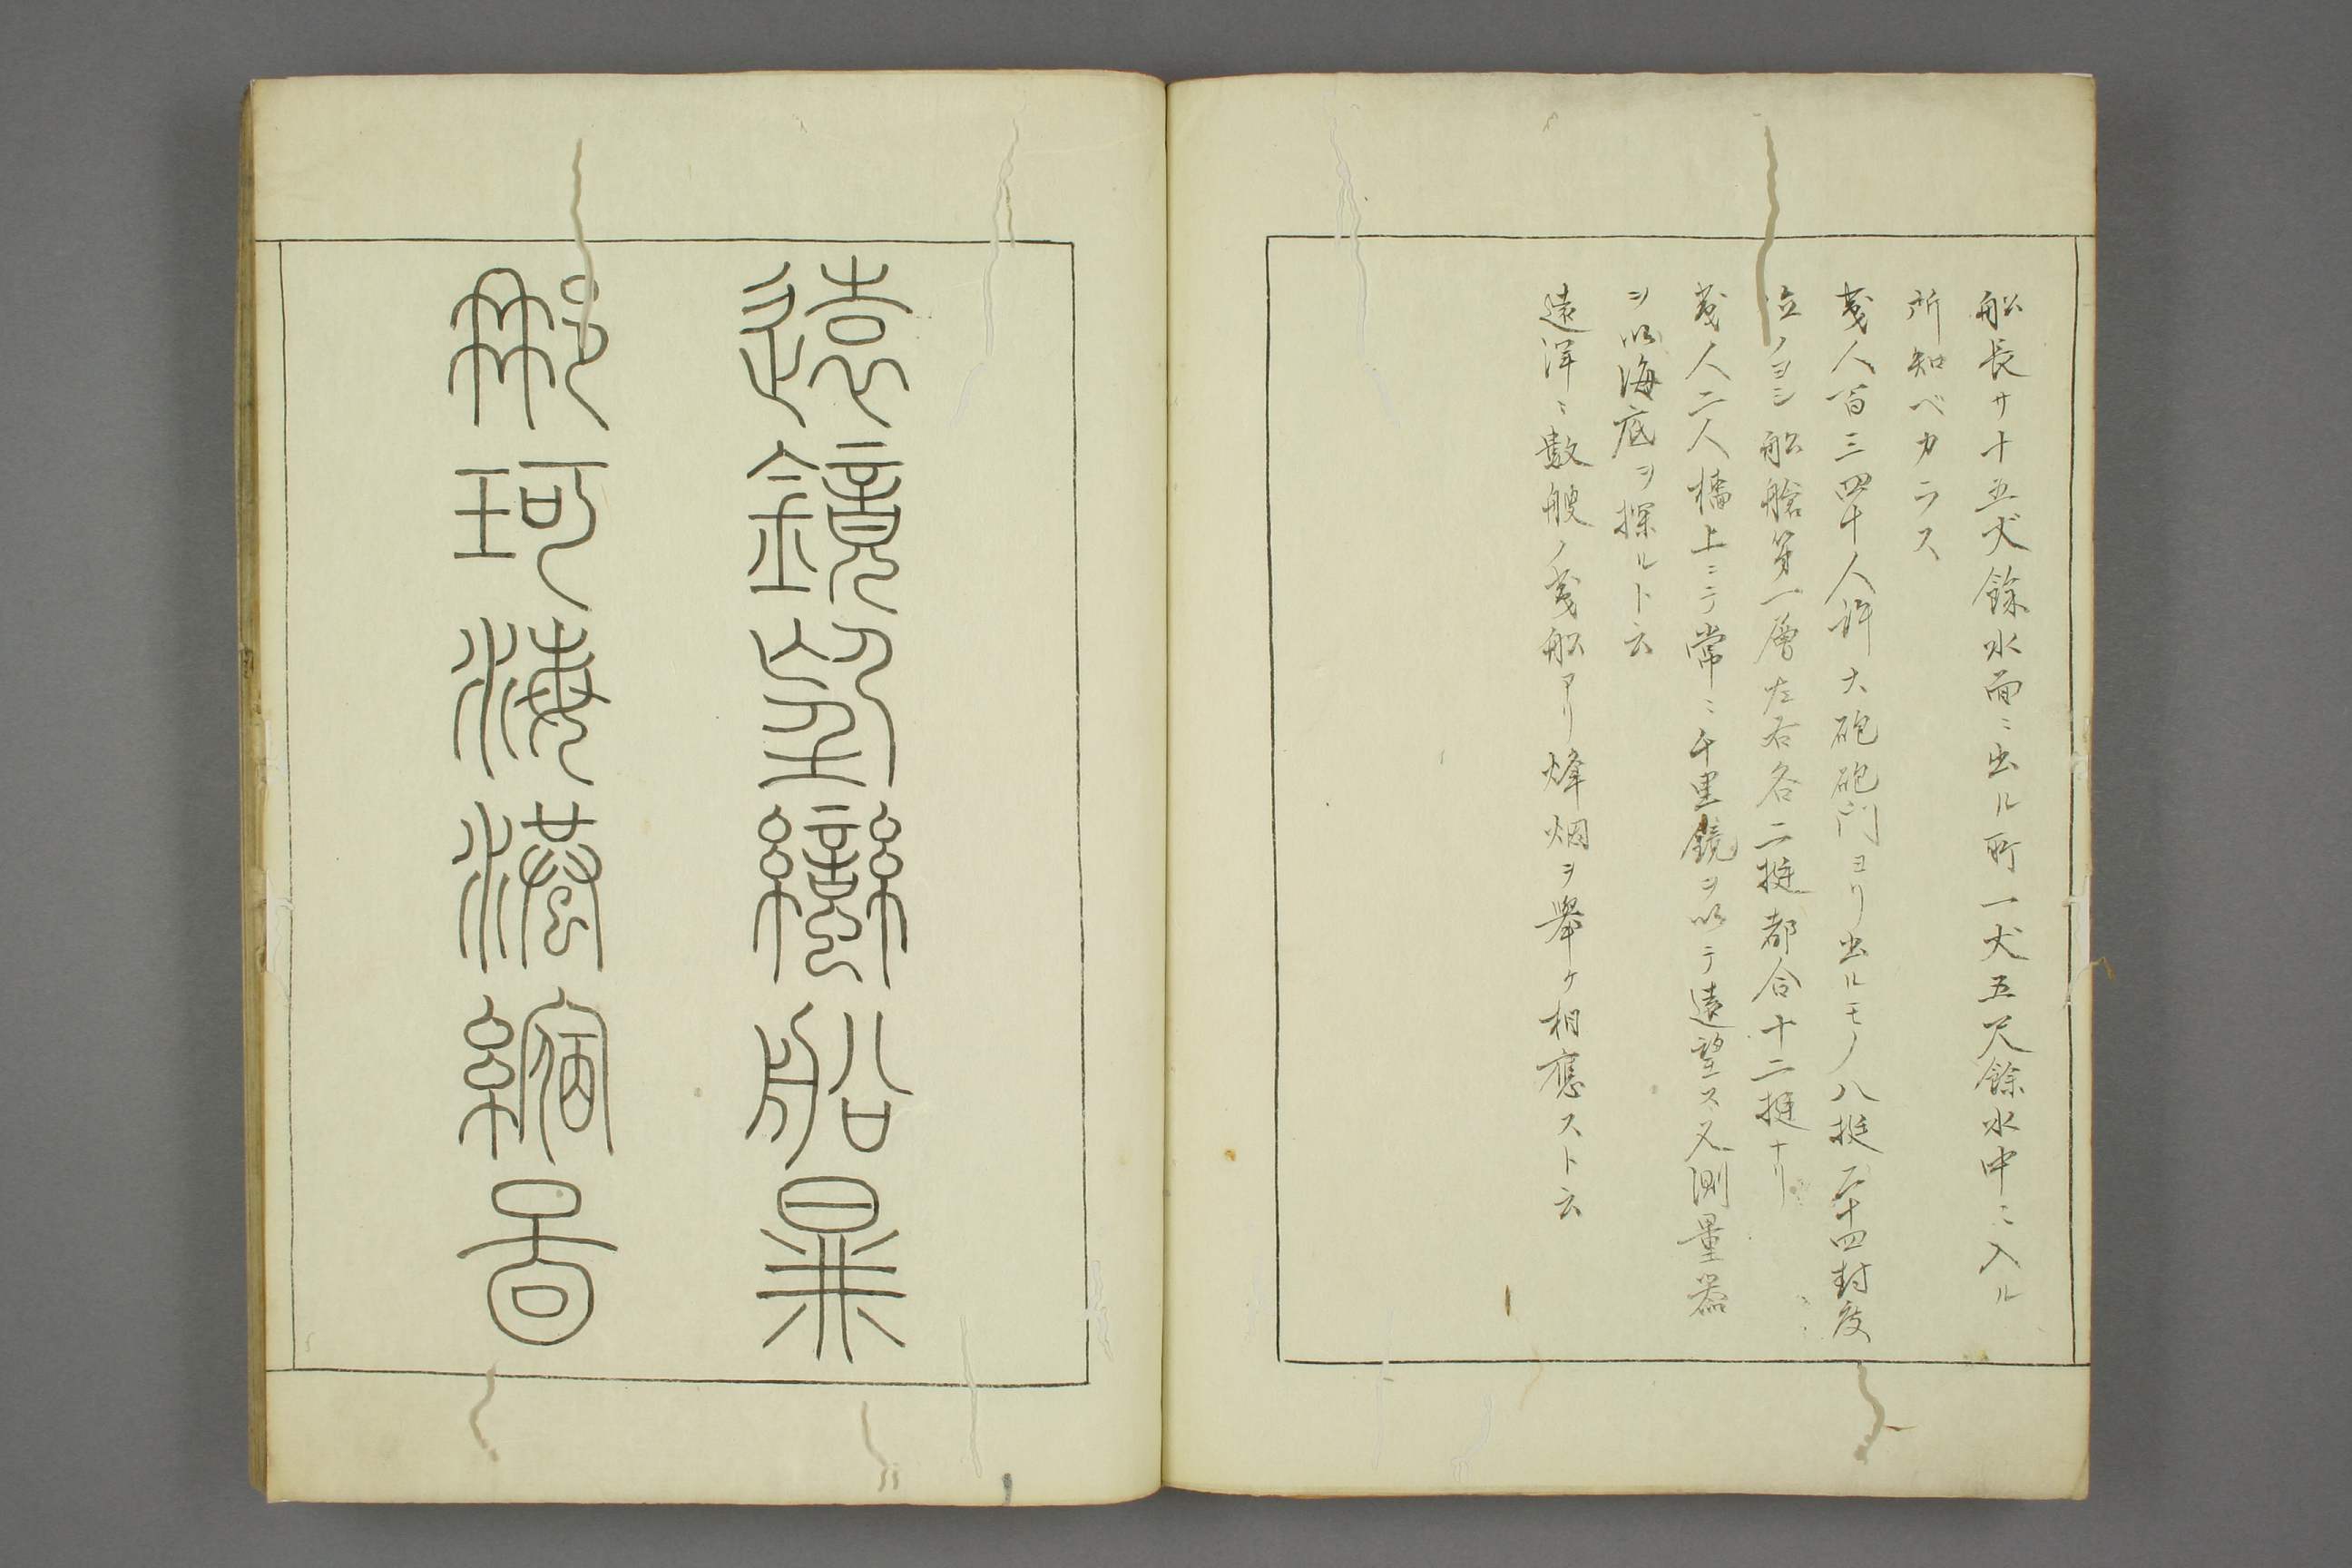 船長サ十五丈餘水面ニ出ル所一丈五尺餘水中ニ入ル
所知ベカラス
夷人百三四十人許大砲砲門ヨリ出ルモノ八挺二十四封度
位ノヨシ船艙第一層左右各二挺都合十二挺ナリ
夷人二人檣上ニテ常ニ千里鏡ヲ以テ遠望ス又測量器
ヲ以海底ヲ探ルト云
遠洋ニ數艘ノ夷船アリ烽烟ヲ舉ケ相應スト云
遠鏡望蠻船㬥
那珂海湊縮圖